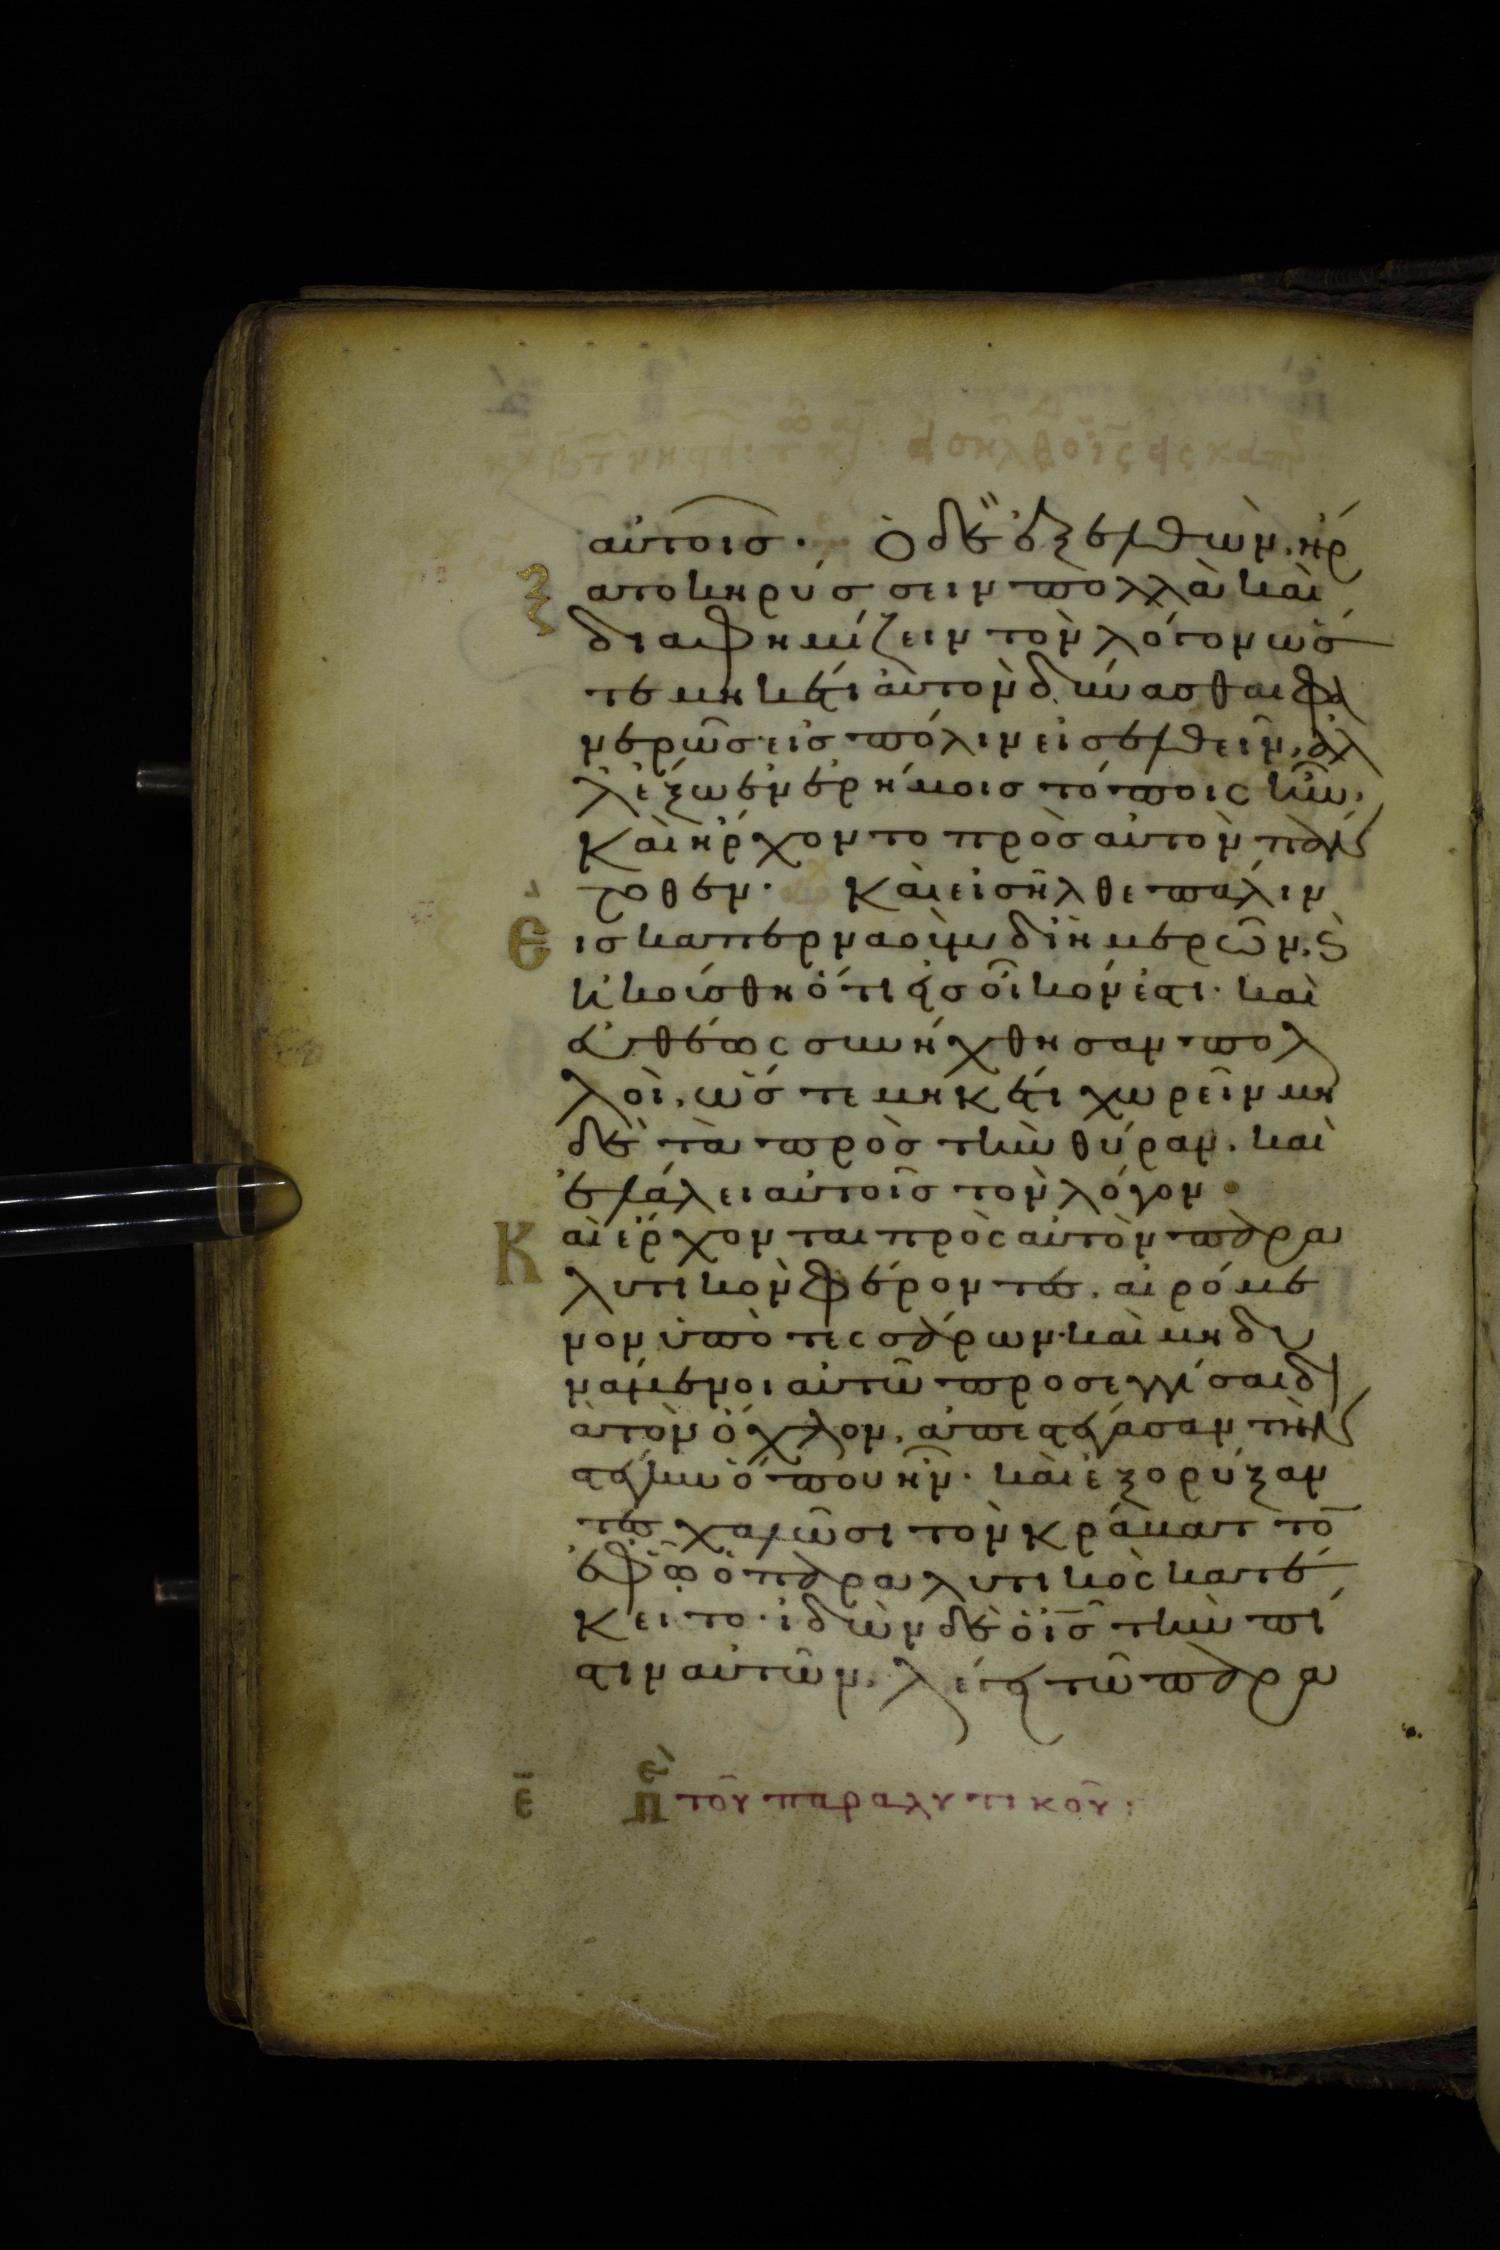 αὐτοῖσ· Ὁ δὲ ἐξελθὼν, ἤρ
ξ
ατο κηρύσσειν πολλὰ καὶ
διαφημίζειν τὸν λόγον ὥσ
τε μηκέτι αὐτὸν δύνασθαι φα
νερῶσ εἰσ πόλιν εἰσελθεῖν, ἀλ
λ' ἔξω ἐν ἐρήμοισ τόποις ἦν,
καὶ ἤρχοντο πρὸσ αὐτὸν παν
τοθεν· Καὶ εἰσῆλθε πάλιν
Ε
ισ καπερναοὺμ δι ἡμερῶν, καὶ
ἠκούσθη ὅτι εἰσ οἶκόν ἐστι· καὶ
εὐθέως συνήχθησαν πολ
λοὶ, ὥστε μηκέτι χωρεῖν μη
δὲ τὰ πρὸσ τὴν θύραν. καὶ
ἐλάλει αὐτοῖσ τὸν λόγον·
Κ
αὶ ἔρχονται πρὸς αὐτὸν παρα
λυτικὸν φέροντεσ. αἰρόμε
νον ὑπὸ τεσσάρων· καὶ μὴ δυ
νάμενοι αὐτῶ προσεγγίσαι δι
ὰ τὸν ὄχλον, ἀπεστέγασαν τὴν
στέγην ὅπου ἦν· καὶ ἐξορύξαν
τεσ χαλῶσι τὸν κράβαττο
ἐφ' ᾧ ὁ παραλυτικὸς κατέ
κειτο· ἰδὼν δὲ ὁ ι̅σ̅ τὴν πί
στιν αὐτῶν, λέγει τῶ παρα
ε̅ π ε τοῦ παραλυτικοῦ: